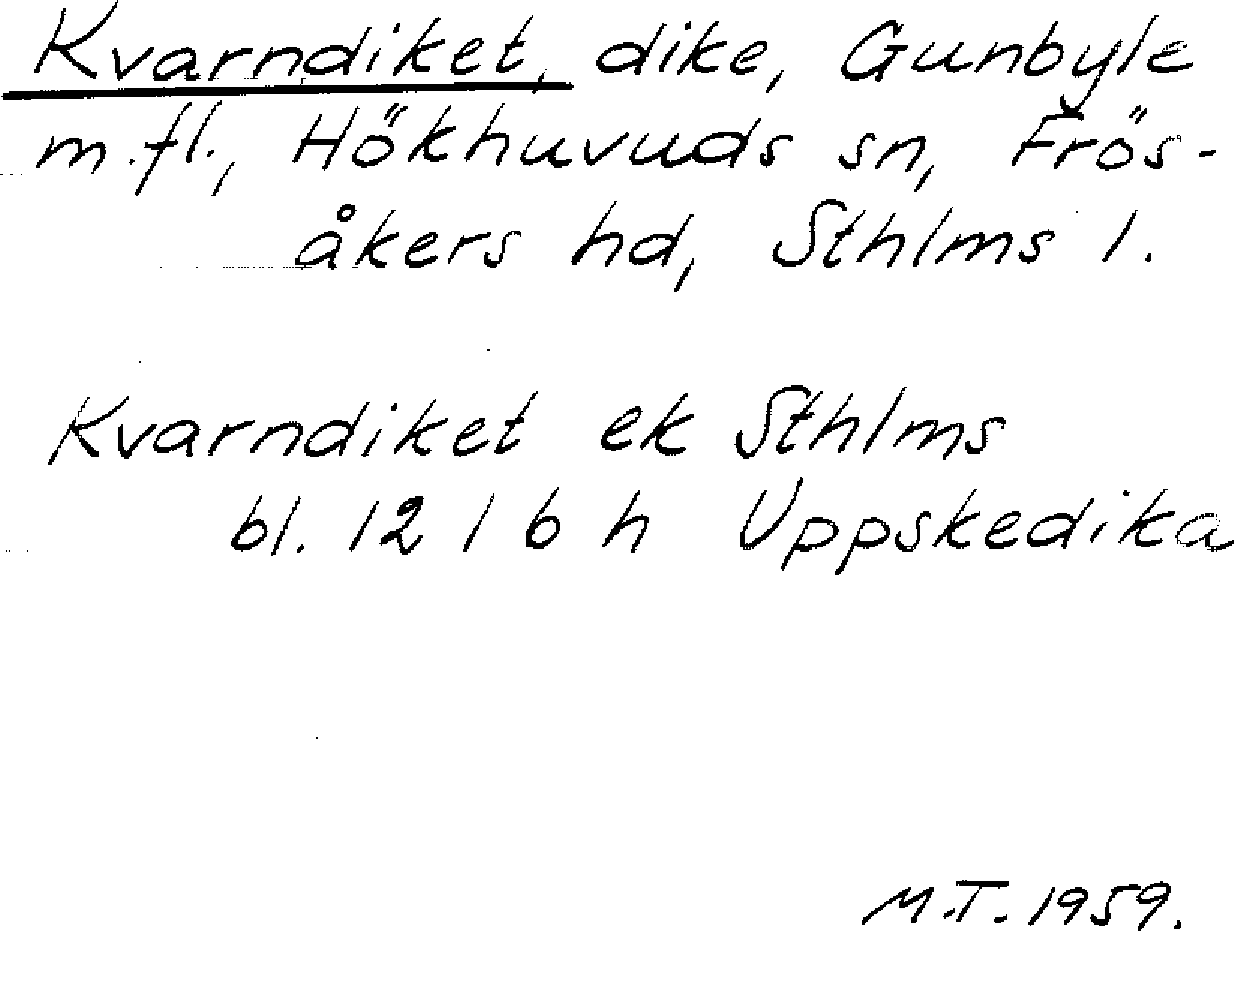 Kvarndiket, dike, Gunbyle
m.fl., Hökhuvuds sn, Frös-
åkers hd, Sthlms l.
Kvarndiket ek Sthlms
bl. 12 I 6 h Uppskedika
M.T. 1959.